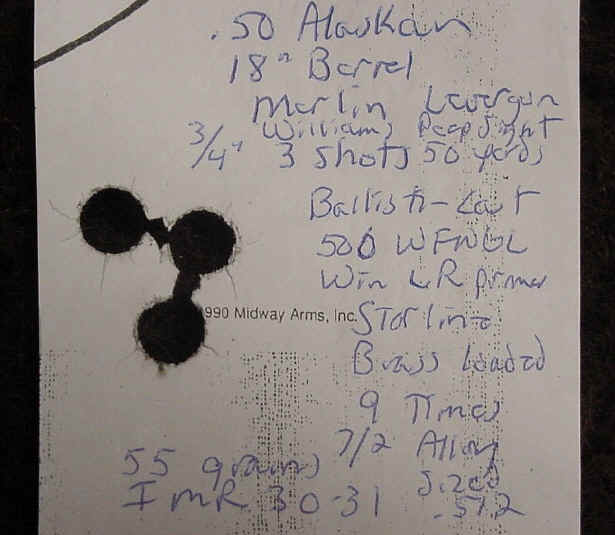 .50 Alaskan
18" Barrel
Marlin Levergun
Williams Peep Sight
3/4" 3 shots 50 yards
Ballisti-Cast
500 WFNGC
Win LR primer
990 Midway Arms, Inc.
Starline
Brass Loaded
9 Times
7/2 Alloy
Sized
.512
55 grains
IMR 30-31